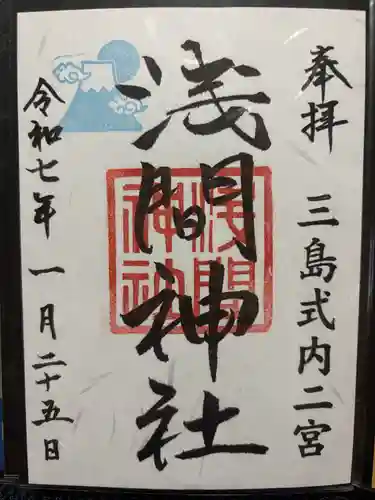 奉拝 三島式内二宮
浅間神社
浅間神社
令和七年 一月二十五日